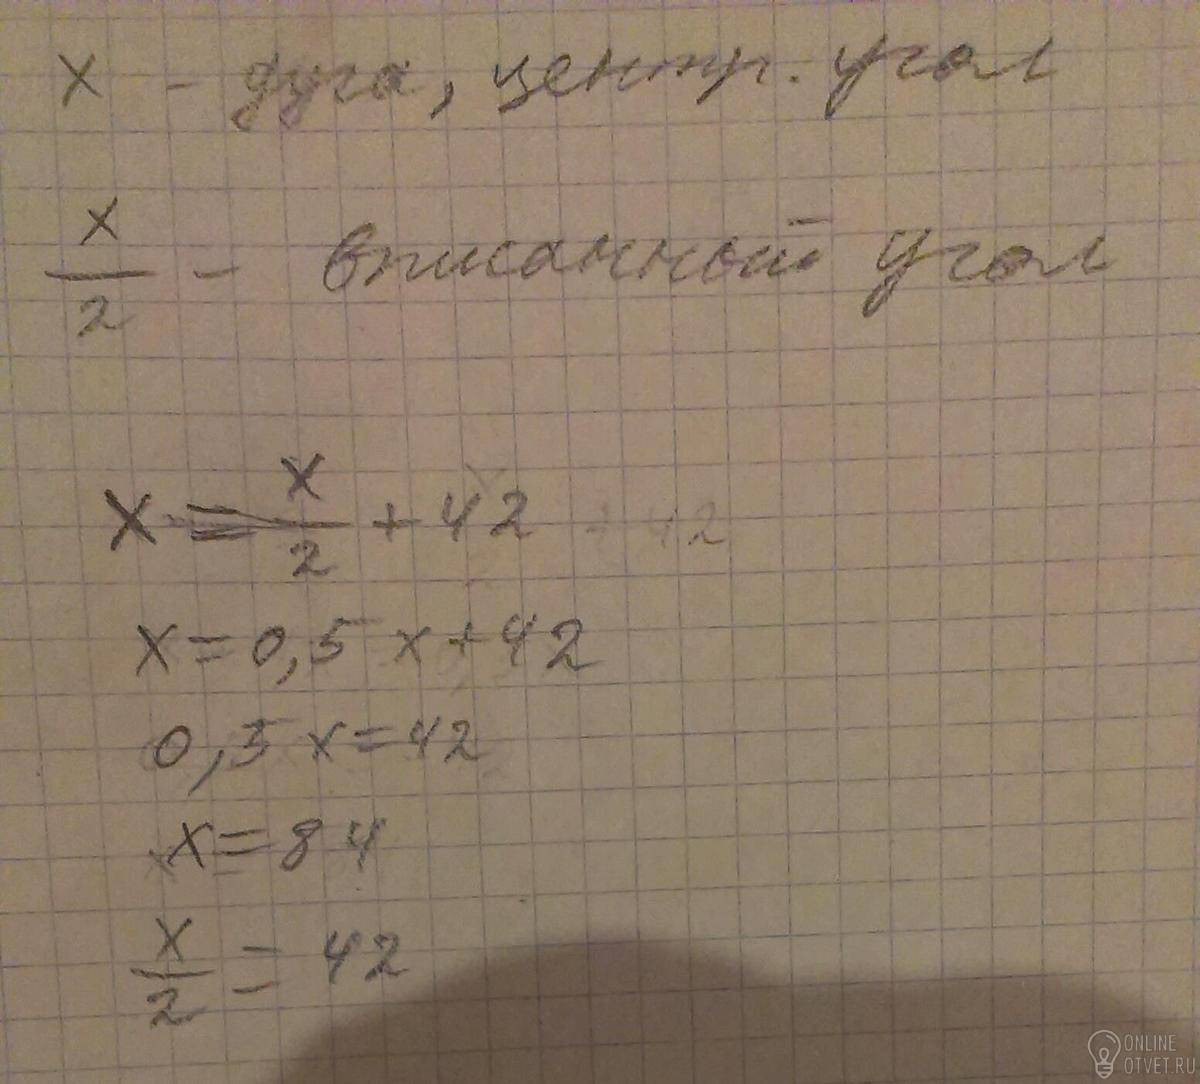 x - дуга, центр. угол
x/2 - вписанный угол
x = x/2 + 42 + 42
x = 0,5 x + 42
0,5 x = 42
x = 84
x/2 = 42
ONLINE
OTVET.RU